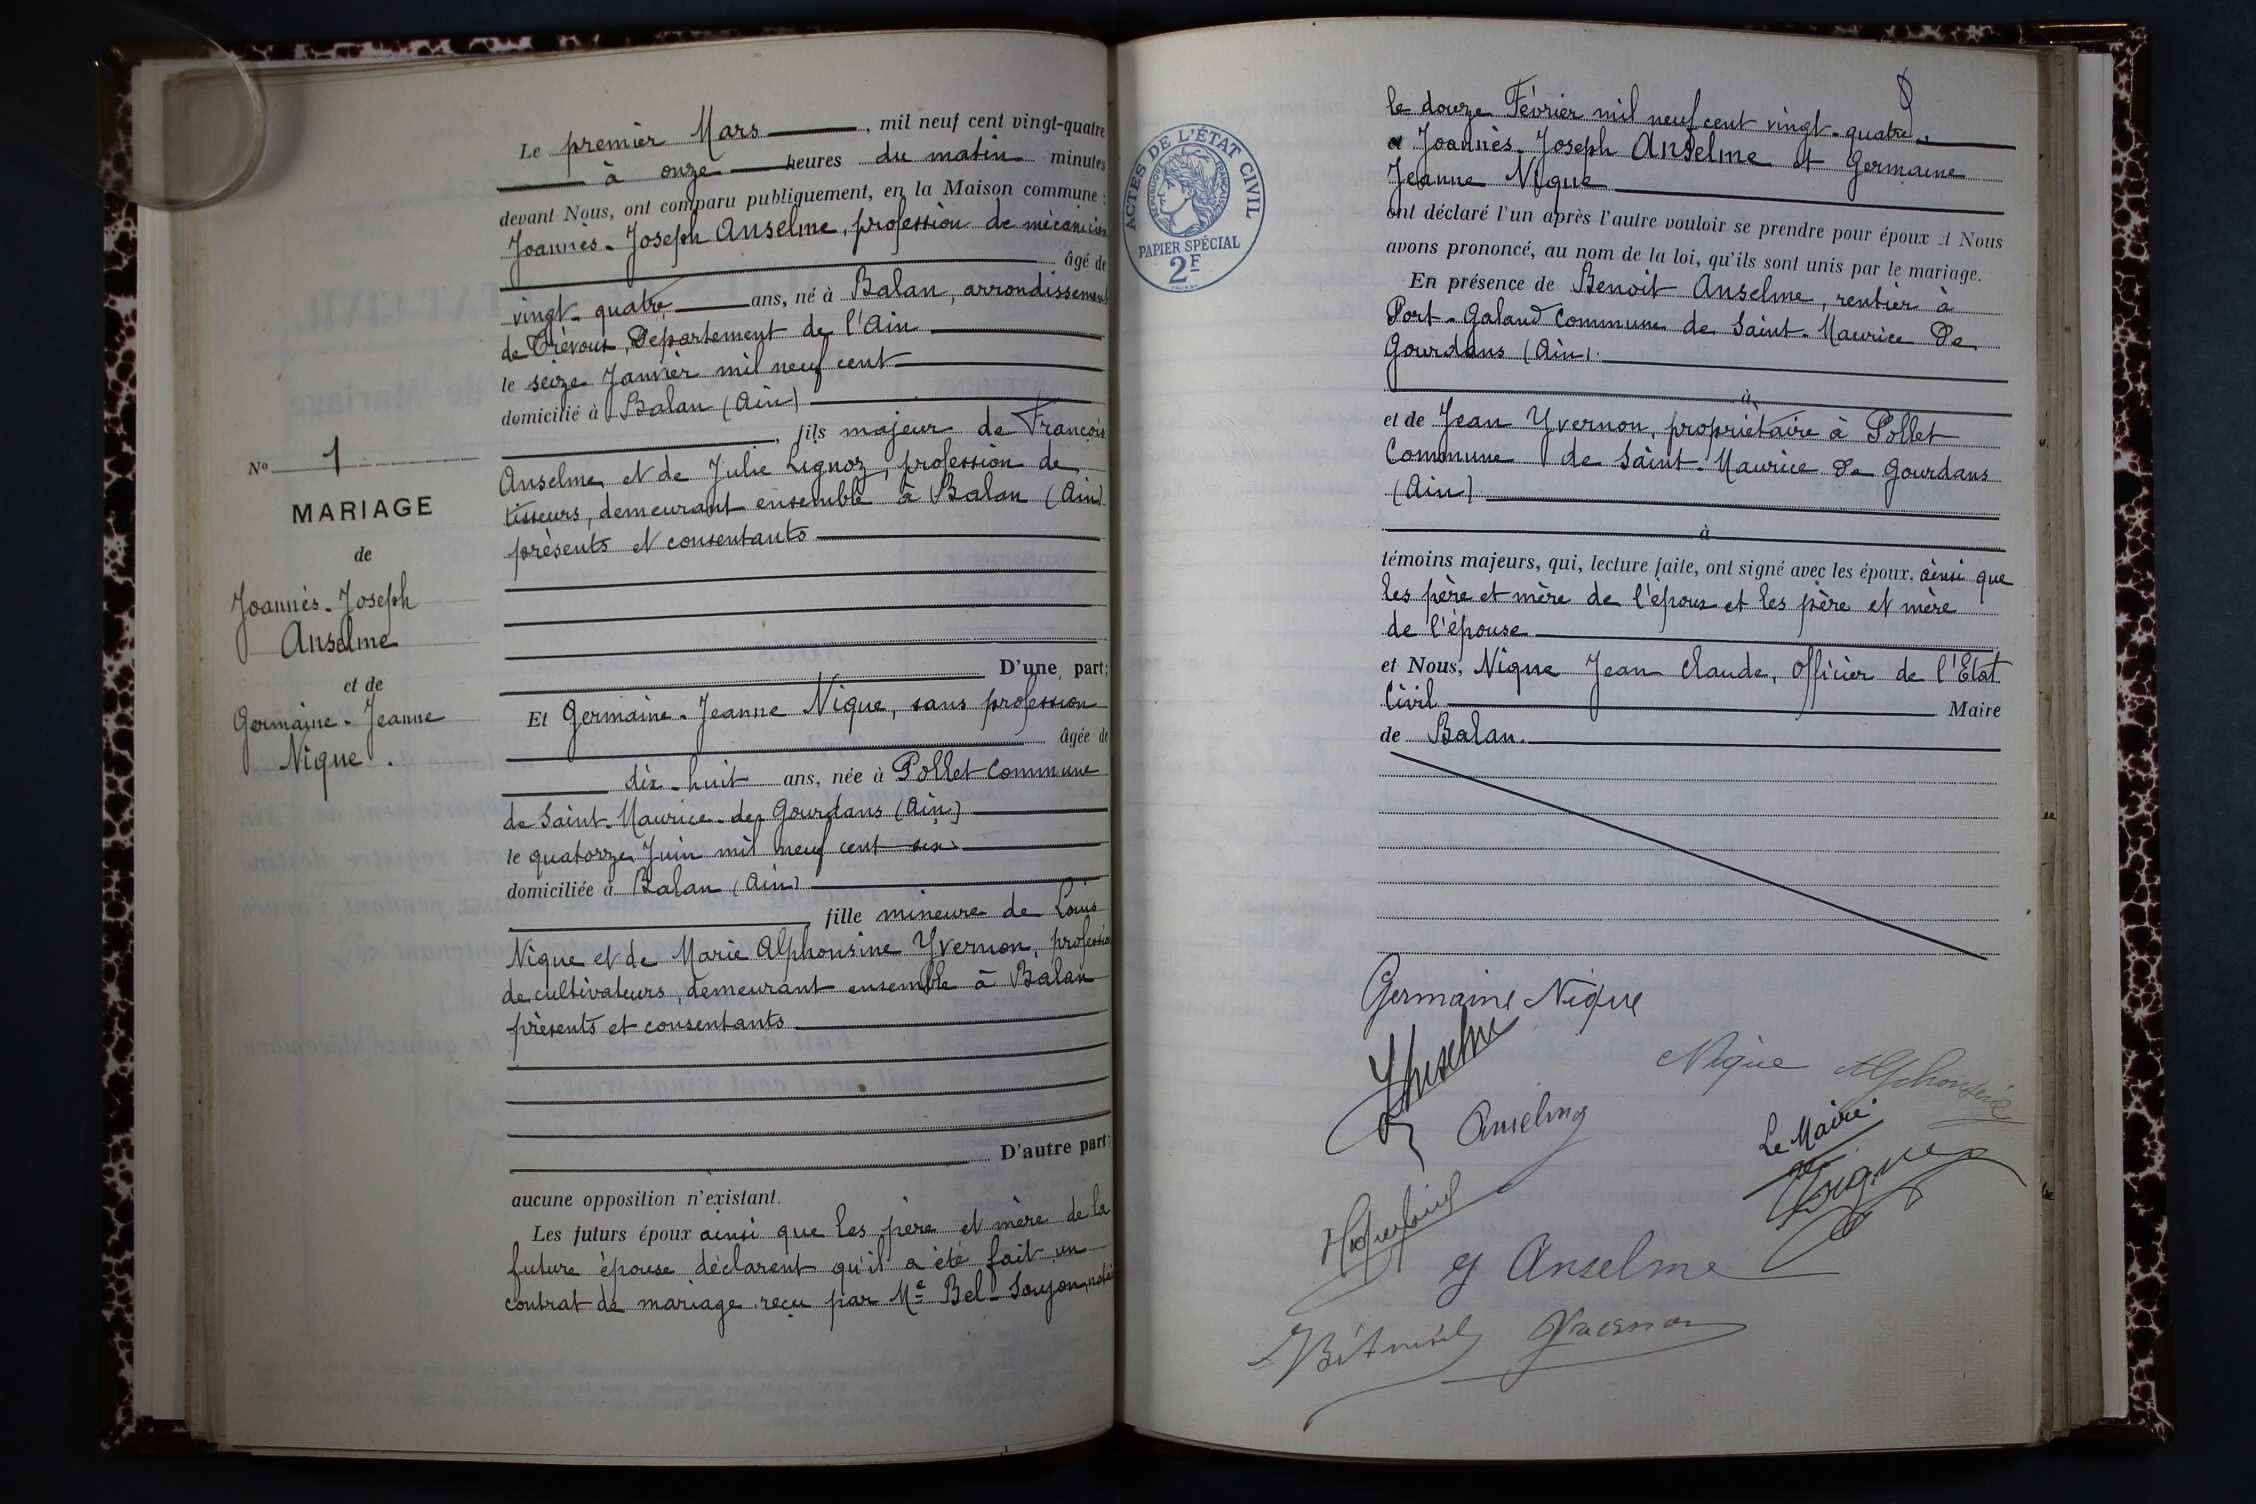 N° 1
MARIAGE
de
Joannès-Joseph
Anselme
et de
Germaine-Jeanne
Nique.
Le premier Mars, mil neuf cent vingt-quatre
à onze heures du matin minutes
devant Nous, ont comparu publiquement, en la Maison commune :
Joannès-Joseph Anselme, profession de mécanicien
âgé de
vingt-quatre ans, né à Balan, arrondissement
de Trévoux, Département de l'Ain
le seize Janvier mil neuf cent
domicilié à Balan (Ain)
, fils majeur de François
Anselme et de Julie Lignoz, profession de
tisseurs, demeurant ensemble à Balan (Ain)
présents et consentants
D'une part;
Et Germaine-Jeanne Nique, sans profession
âgée de
dix-huit ans, née à Pollet Commune
de Saint-Maurice-de Gourdans (Ain)
le quatorze Juin mil neuf cent six
domiciliée à Balan (Ain)
fille mineure de Louis
Nique et de Marie Alphonsine Yvernon, profession
de cultivateurs, demeurant ensemble à Balan
présents et consentants
D'autre part;
aucune opposition n'existant.
Les futurs époux ainsi que les père et mère de la
future épouse déclarent qu'il a été fait un
contrat de mariage reçu par Me Bel-Soujon, not
ACTES DE L'ÉTAT CIVIL
RÉPUBLIQUE FRANÇAISE
PAPIER SPÉCIAL
2F
le douze Février mil neuf cent vingt-quatre.
et Joannès-Joseph Anselme et Germaine
Jeanne Nique
ont déclaré l'un après l'autre vouloir se prendre pour époux et Nous
avons prononcé, au nom de la loi, qu'ils sont unis par le mariage.
En présence de Benoit Anselme, rentier à
Port-Galand Commune de Saint-Maurice de
Gourdans (Ain).
à
et de Jean Yvernon, propriétaire à Pollet
Commune de Saint-Maurice de Gourdans
(Ain)
à
témoins majeurs, qui, lecture faite, ont signé avec les époux, ainsi que
les père et mère de l'époux et les père et mère
de l'épouse
et Nous, Nique Jean Claude, Officier de l'Etat
Civil Maire
de Balan.
Germaine Nique
Anselme
Nique Alphonsine
Anselme
Le Maire
Nique
Anselme
Yvernon